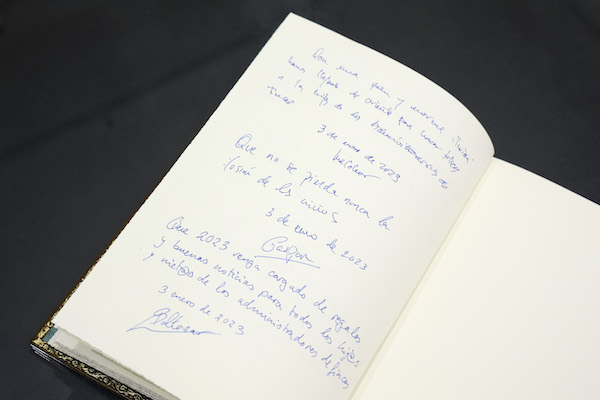 Con una gran y enorme ilusión
hemos llegado de oriente para
a los hij@s de los Administradores de
Fincas
3 de enero de 2023
Melchor
Que no se pierda nunca la
ilusión de los niños
3 de enero de 2023
Gaspar
Que 2023 venga cargado de regalos
y buenas noticias para todos los hij@s
y niet@s de los administradores de fincas
3 enero de 2023
Baltasar